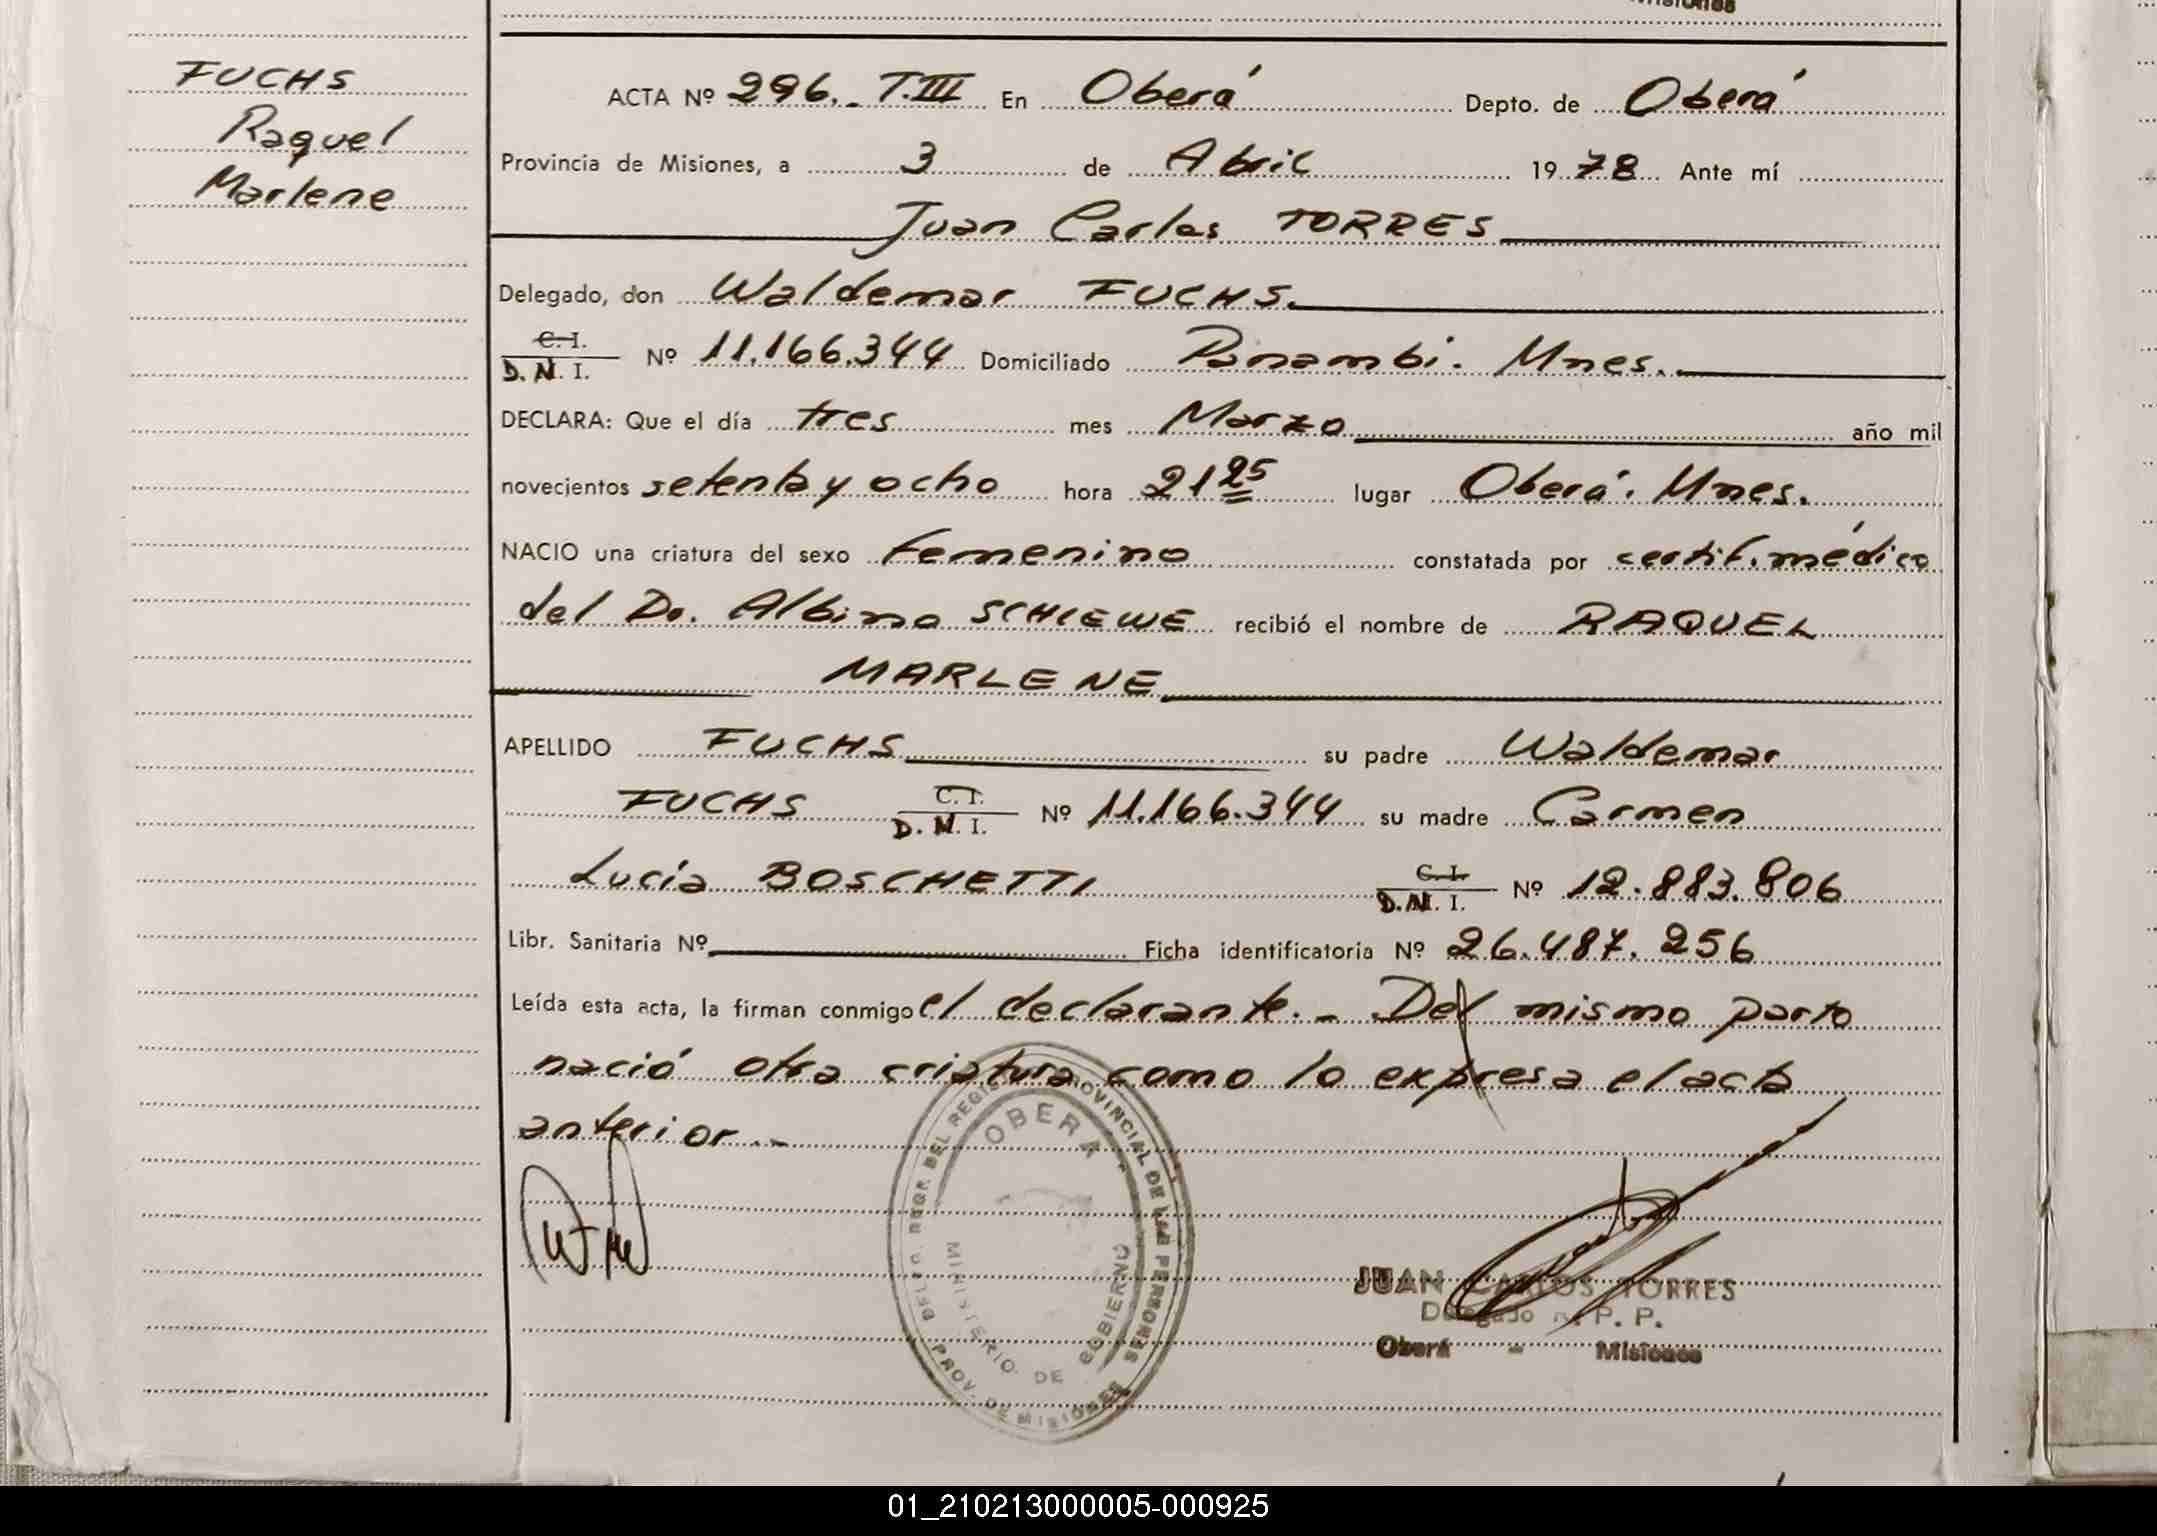 FUCHS
Raquel
Marlene
ACTA Nº 296._ T.III En Oberá Depto. de Oberá
Provincia de Misiones, a 3 de Abril 1978 Ante mí
Juan Carlos TORRES
Delegado, don Waldemar FUCHS.
C. I.
D. N. I. Nº 11.166.344 Domiciliado Panambi. Mnes.
DECLARA: Que el día tres mes Marzo año mil
novecientos setenta y ocho hora 21 25 lugar Oberá. Mnes.
NACIO una criatura del sexo femenino constatada por certif. médico
del Dr. Albino SCHIEWE recibió el nombre de RAQUEL
MARLENE
APELLIDO FUCHS su padre Waldemar
FUCHS C. I. D. N. I. Nº 11.166.344 su madre Carmen
Lucía BOSCHETTI C. I. D. N. I. Nº 12.883.806
Libr. Sanitaria Nº Ficha identificatoria Nº 26.487.256
Leída esta acta, la firman conmigo el declarante._ Del mismo parto
nació otra criatura como lo expresa el acta
anterior._
OBERA
MINISTERIO DE GOBIERNO
PROV. DE MISIONES
PROVINCIAL DE LAS PERSONAS
JUAN CARLOS TORRES
Delegado R. P. P.
Oberá - Misiones
01_210213000005-000925